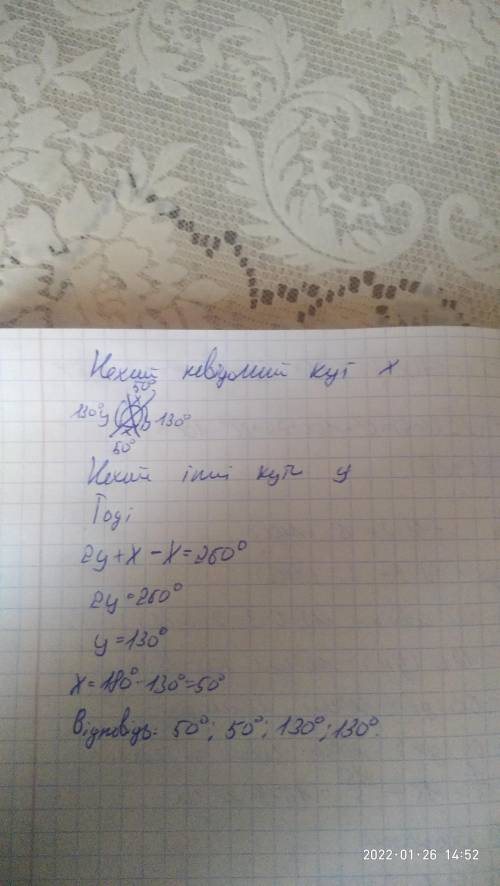 Нехай невідомий кут x
50°
130° y x y 130°
x
50°
Нехай інші кути y
Тоді
2y+x-x=260°
2y=260°
y=130°
x=180°-130°=50°
Відповідь: 50°; 50°; 130°; 130°.
2022-01-26 14:52